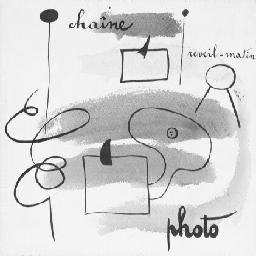 chaîne
reveil-matin
photo